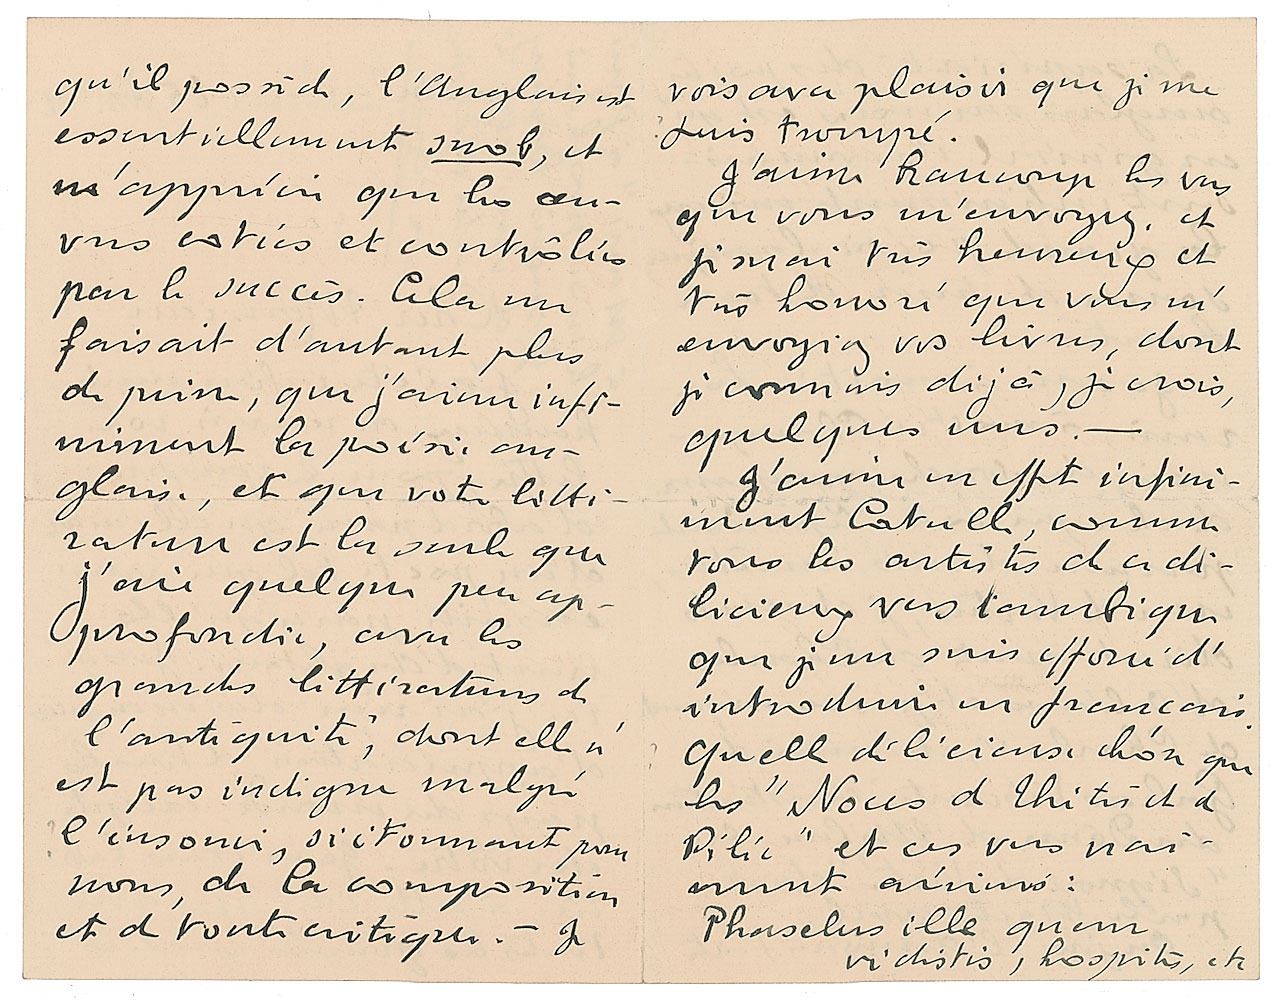 qu'il possède, l'Anglais est
essentiellement snob, et
n'apprécie que les œu-
vres cotées et contrôlées
par le succès. Cela me
faisait d'autant plus
de peine, que j'aime infi-
niment la poésie an-
glaise, et que votre litté-
rature est la seule que
j'aie quelque peu ap-
profondie, avec les
grandes littératures de
l'antiquité, dont elle n'
est pas indigne malgré
l'insouci, si étonnant pour
nous, de la composition
et de toute critique. — Je
vois avec plaisir que je me
suis trompé.
J'aime beaucoup les vers
que vous m'envoyez, et
je serai très heureux et
très honoré que vous m'
envoyiez vos livres, dont
je connais déjà, je crois,
quelques uns. —
J'aime en effet infini-
ment Catulle, comme
tous les artistes de ce dé-
licieux vers iambique
que je me suis efforcé d'
introduire en français.
Quelle délicieuse chose que
les "Noces de Thétis et de
Pélée" et ces vers vrai-
ment aériens :
Phaselus ille quem
vidistis, hospites, etc